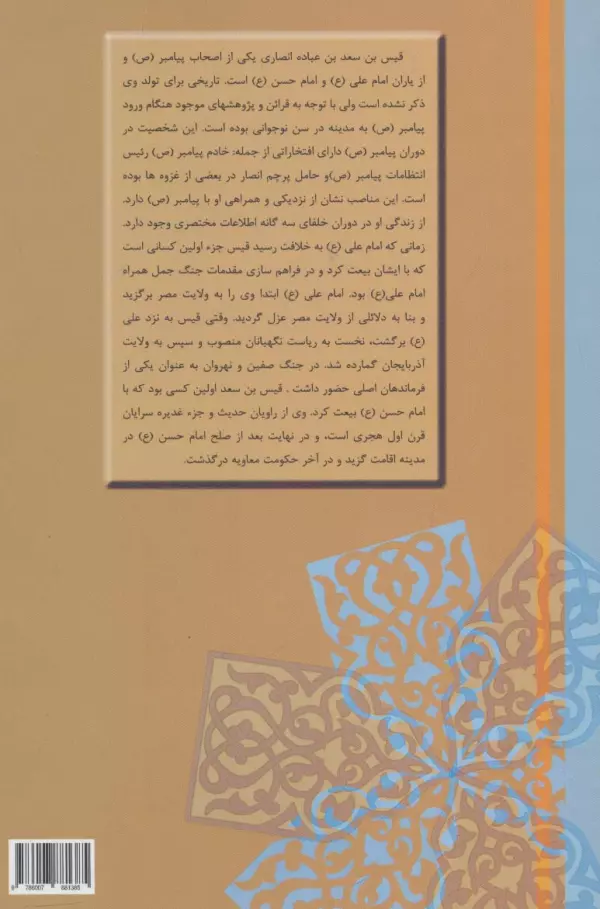 قیس بن سعد بن عباده انصاری یکی از اصحاب پیامبر (ص) و
از یاران امام علی (ع) و امام حسن (ع) است. تاریخی برای تولد وی
ذکر نشده است ولی با توجه به قرائن و پژوهشهای موجود هنگام ورود
پیامبر (ص) به مدینه در سن نوجوانی بوده است. این شخصیت در
دوران پیامبر (ص) دارای افتخاراتی از جمله: خادم پیامبر (ص) رئیس
انتظامات پیامبر (ص)و حامل پرچم انصار در بعضی از غزوه ها بوده
است. این مناصب نشان از نزدیکی و همراهی او با پیامبر (ص) دارد.
از زندگی او در دوران خلفای سه گانه اطلاعات مختصری وجود دارد.
زمانی که امام علی (ع) به خلافت رسید قیس جزء اولین کسانی است
که با ایشان بیعت کرد و در فراهم سازی مقدمات جنگ جمل همراه
امام علی(ع) بود. امام علی (ع) ابتدا وی را به ولایت مصر برگزید
و بنا به دلائلی از ولایت مصر عزل گردید. وقتی قیس به نزد علی
(ع) برگشت، نخست به ریاست نگهبانان منصوب و سپس به ولایت
آذربایجان گمارده شد. در جنگ صفین و نهروان به عنوان یکی از
فرماندهان اصلی حضور داشت . قیس بن سعد اولین کسی بود که با
امام حسن (ع) بیعت کرد. وی از راویان حدیث و جزء غدیره سرایان
قرن اول هجری است، و در نهایت بعد از صلح امام حسن (ع) در
مدینه اقامت گزید و در آخر حکومت معاویه درگذشت.